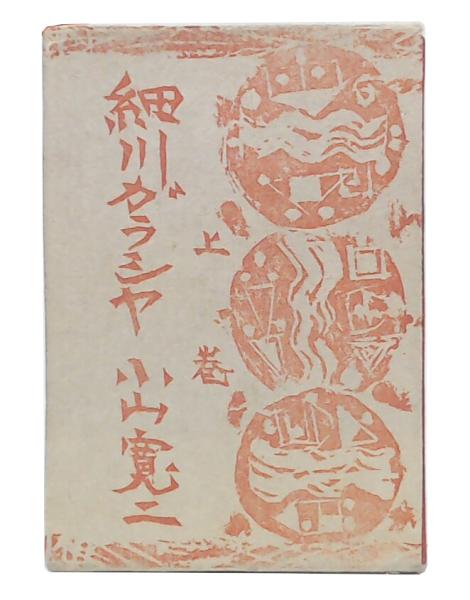 上巻
細川ガラシヤ 小山寛二